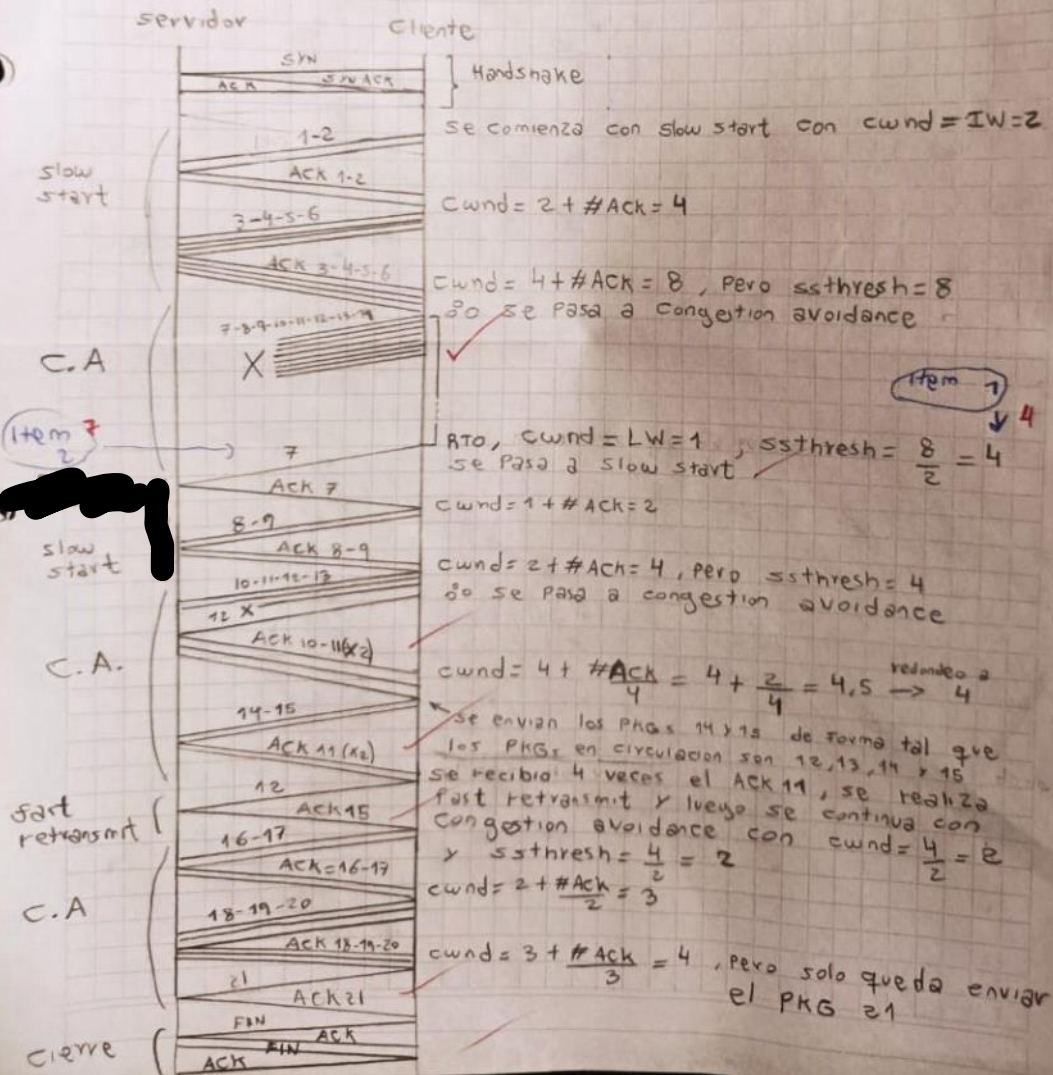 servidor
Cliente
SYN
ACK SYN ACK
Handshake
1-2
se comienza con slow start con cwnd = IW=2
slow
start
ACK 1-2
3-4-5-6
cwnd = 2 + #ACK = 4
ACK 3-4-5-6
cwnd = 4 + #ACK = 8, pero ssthresh = 8
∴ se pasa a congestion avoidance
7-8-9-10-11-12-13-14
X
C.A
Item 1
4
Item 7
2
7
RTO, cwnd = LW=1, ssthresh = 8/2 = 4
se pasa a slow start
ACK 7
cwnd = 1 + #ACK = 2
8-9
slow
start
ACK 8-9
10-11-12-13
cwnd = 2 + #ACK = 4, pero ssthresh = 4
∴ se pasa a congestion avoidance
12 X
ACK 10-11(x2)
C.A.
cwnd = 4 + #ACK/4 = 4 + 2/4 = 4,5 → 4
redondeo a
14-15
se envian los PKGs 14 y 15 de forma tal que
los PKGs en circulacion son 12,13,14 y 15
ACK 11 (x2)
se recibio 4 veces el ACK 11, se realiza
12
fast retransmit y luego se continua con
fart
retransmit
ACK 15
congestion avoidance con cwnd = 4/2 = 2
16-17
y ssthresh = 4/2 = 2
ACK=16-17
cwnd = 2 + #ACK/2 = 3
C.A
18-19-20
ACK 18-19-20
cwnd = 3 + #ACK/3 = 4, pero solo queda enviar
el PKG 21
21
ACK 21
FIN
ACK
FIN
cierre
ACK